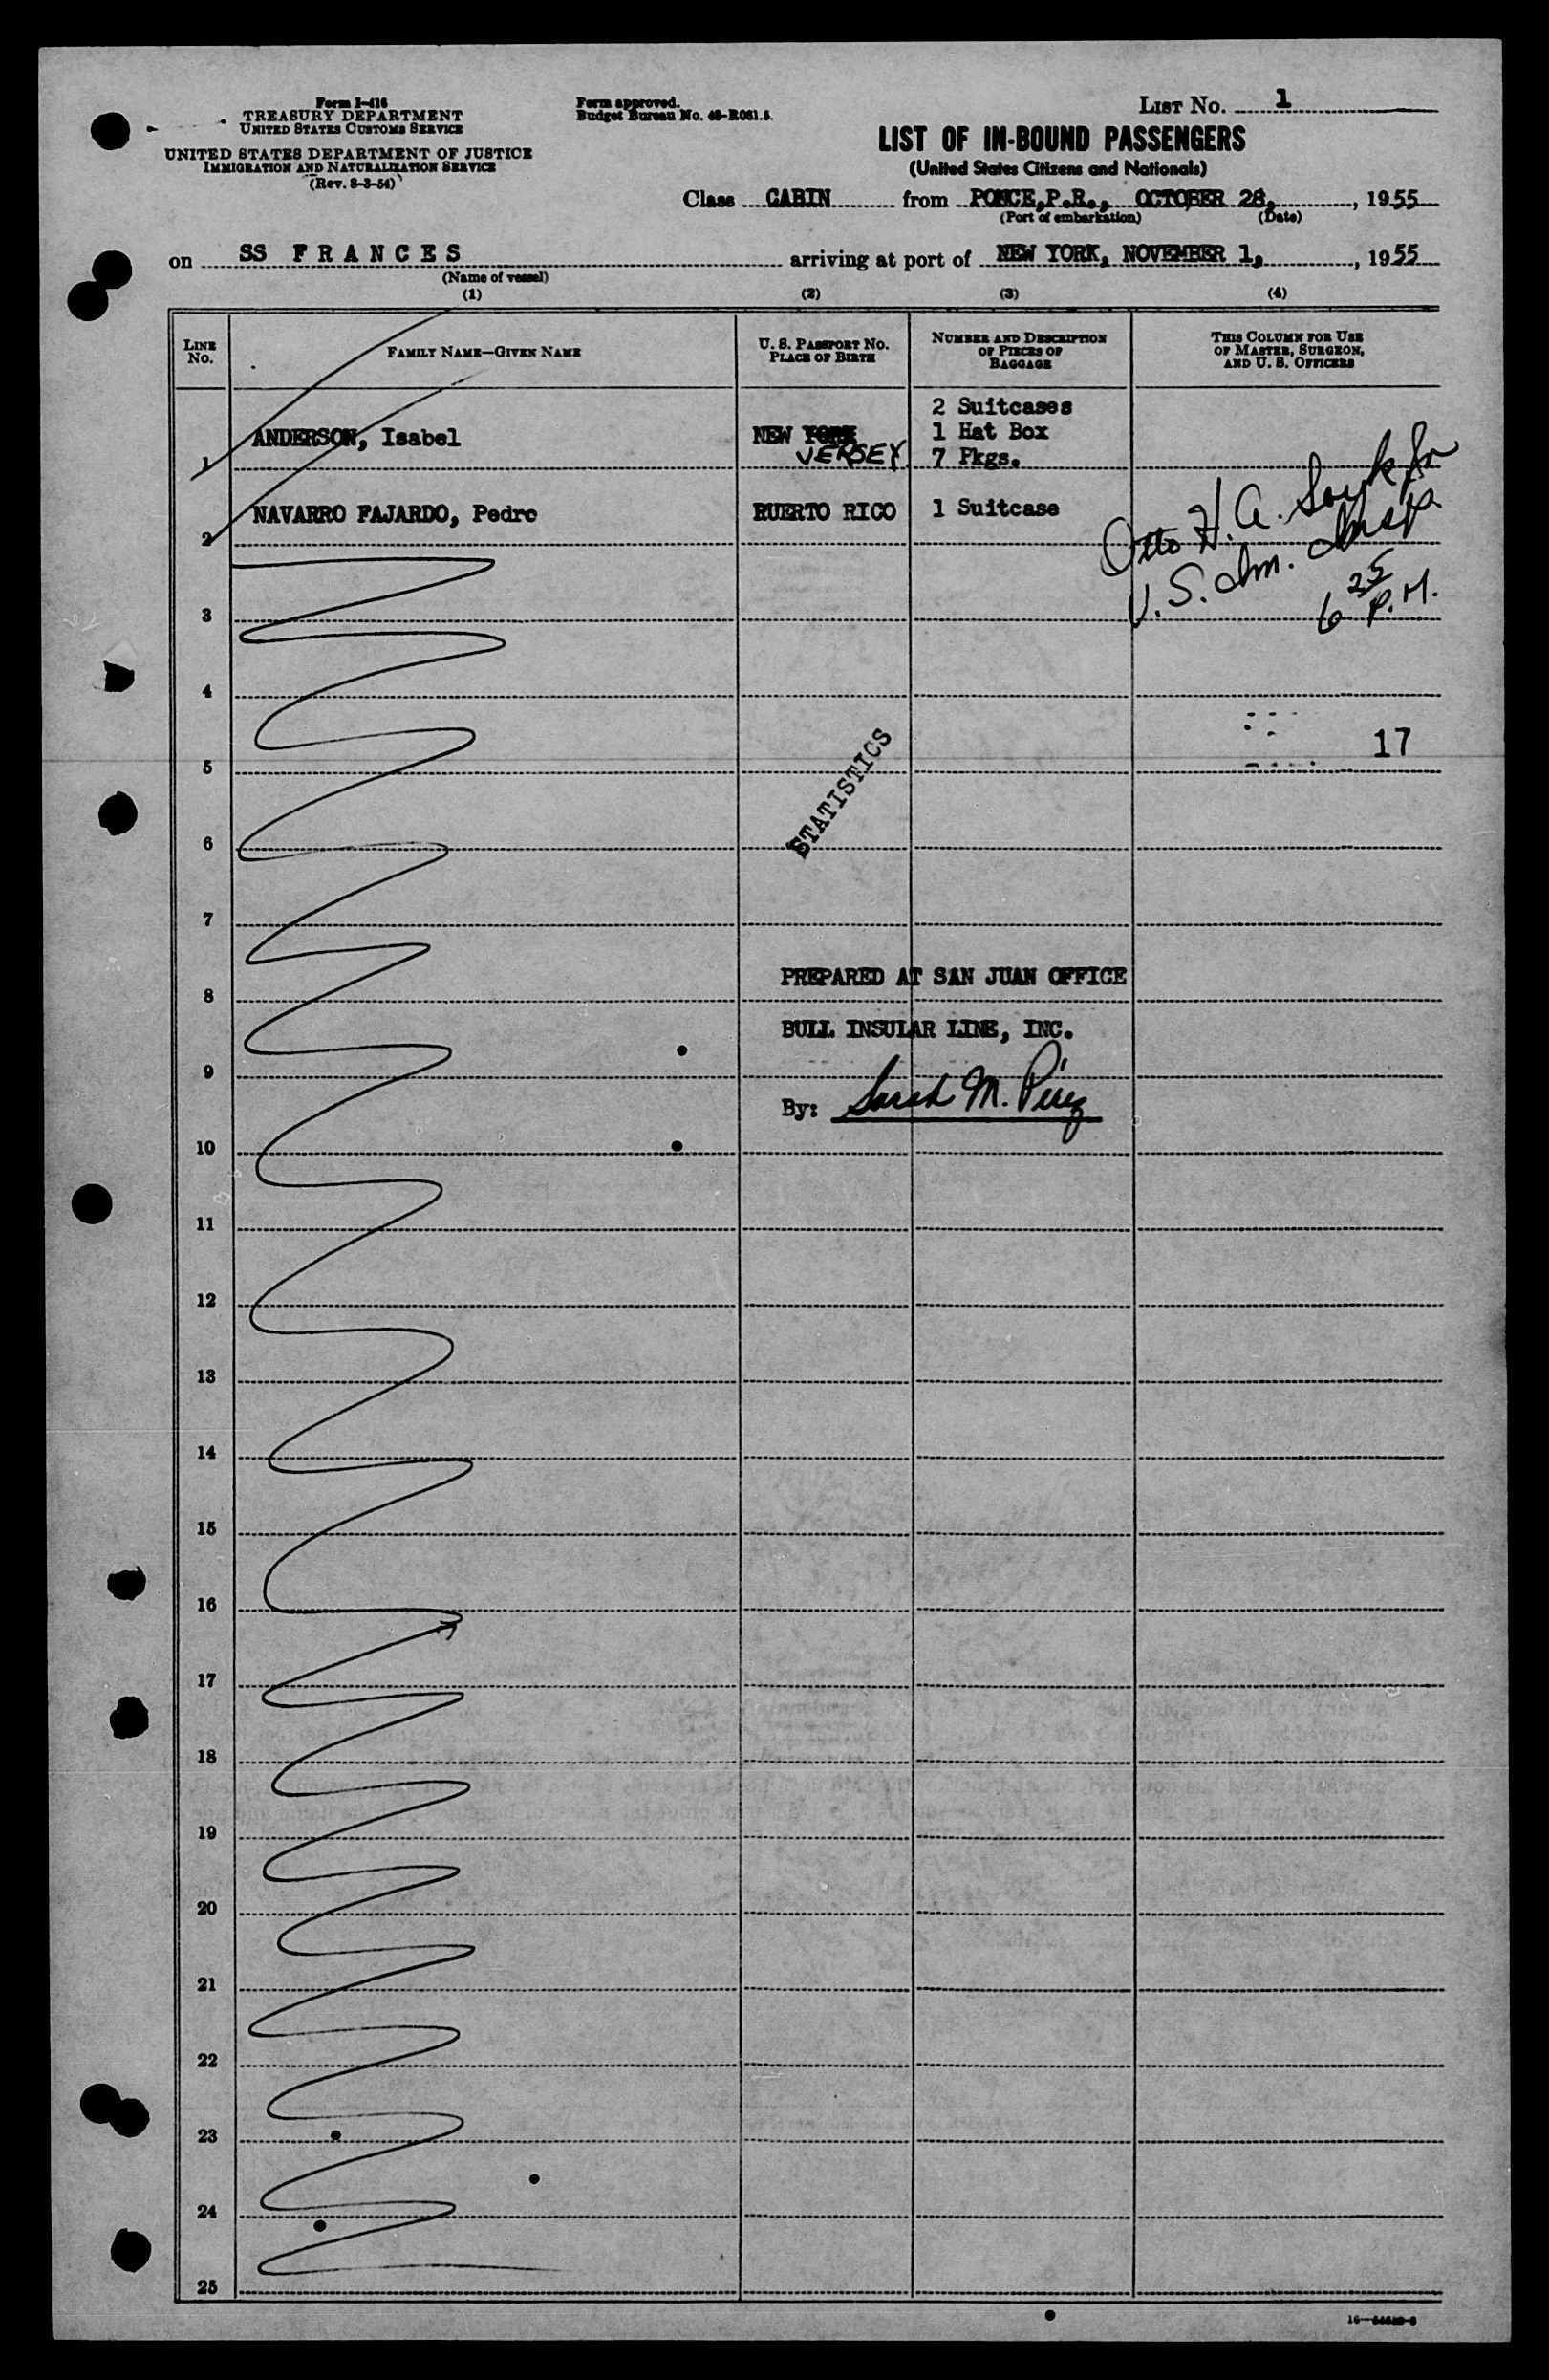 Form I-416
TREASURY DEPARTMENT
UNITED STATES CUSTOMS SERVICE
UNITED STATES DEPARTMENT OF JUSTICE
IMMIGRATION AND NATURALIZATION SERVICE
(Rev. 8-3-54)
Form approved.
Budget Bureau No. 43-R061.5.
LIST No. 1
LIST OF IN-BOUND PASSENGERS
(United States Citizens and Nationals)
Class CABIN from PONCE,P.R., OCTOBER 28, , 1955
(Port of embarkation) (Date)
on SS FRANCES arriving at port of NEW YORK, NOVEMBER 1, , 1955
(Name of vessel)
(1) (2) (3) (4)
LINE No.
FAMILY NAME—GIVEN NAME
U. S. PASSPORT NO. PLACE OF BIRTH
NUMBER AND DESCRIPTION OF PIECES OF BAGGAGE
THIS COLUMN FOR USE OF MASTER, SURGEON, AND U. S. OFFICERS
2 Suitcases
ANDERSON, Isabel NEW YORK 1 Hat Box
1 JERSEY 7 Pkgs.
NAVARRO FAJARDO, Pedro PUERTO RICO 1 Suitcase
2
Otto H. A.
U. S. Im. Insp.
6 25 P.M.
3
4
17
5
STATISTICS
6
7
PREPARED AT SAN JUAN OFFICE
8
BULL INSULAR LINE, INC.
9
By: Sarah M. Pérez
10
11
12
13
14
15
16
17
18
19
20
21
22
23
24
25